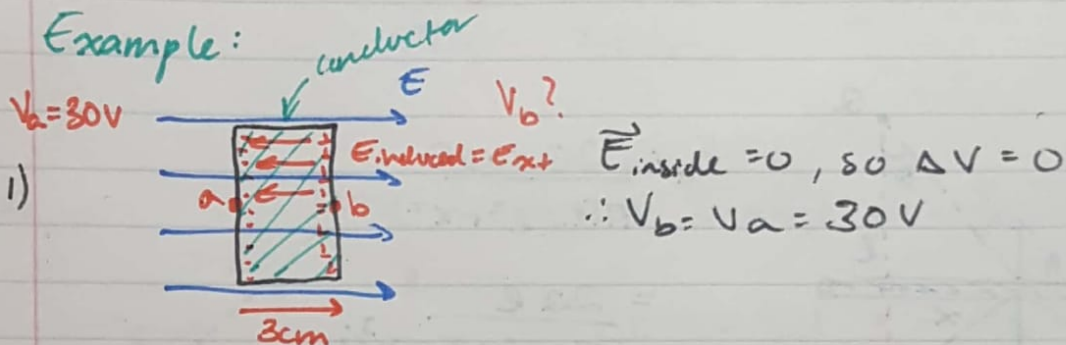 Example:
conductor
E
Va = 30V
Vb?
E induced = Ext
E⃗ inside = 0, so ΔV = 0
1)
a
b
∴ Vb = Va = 30V
3cm